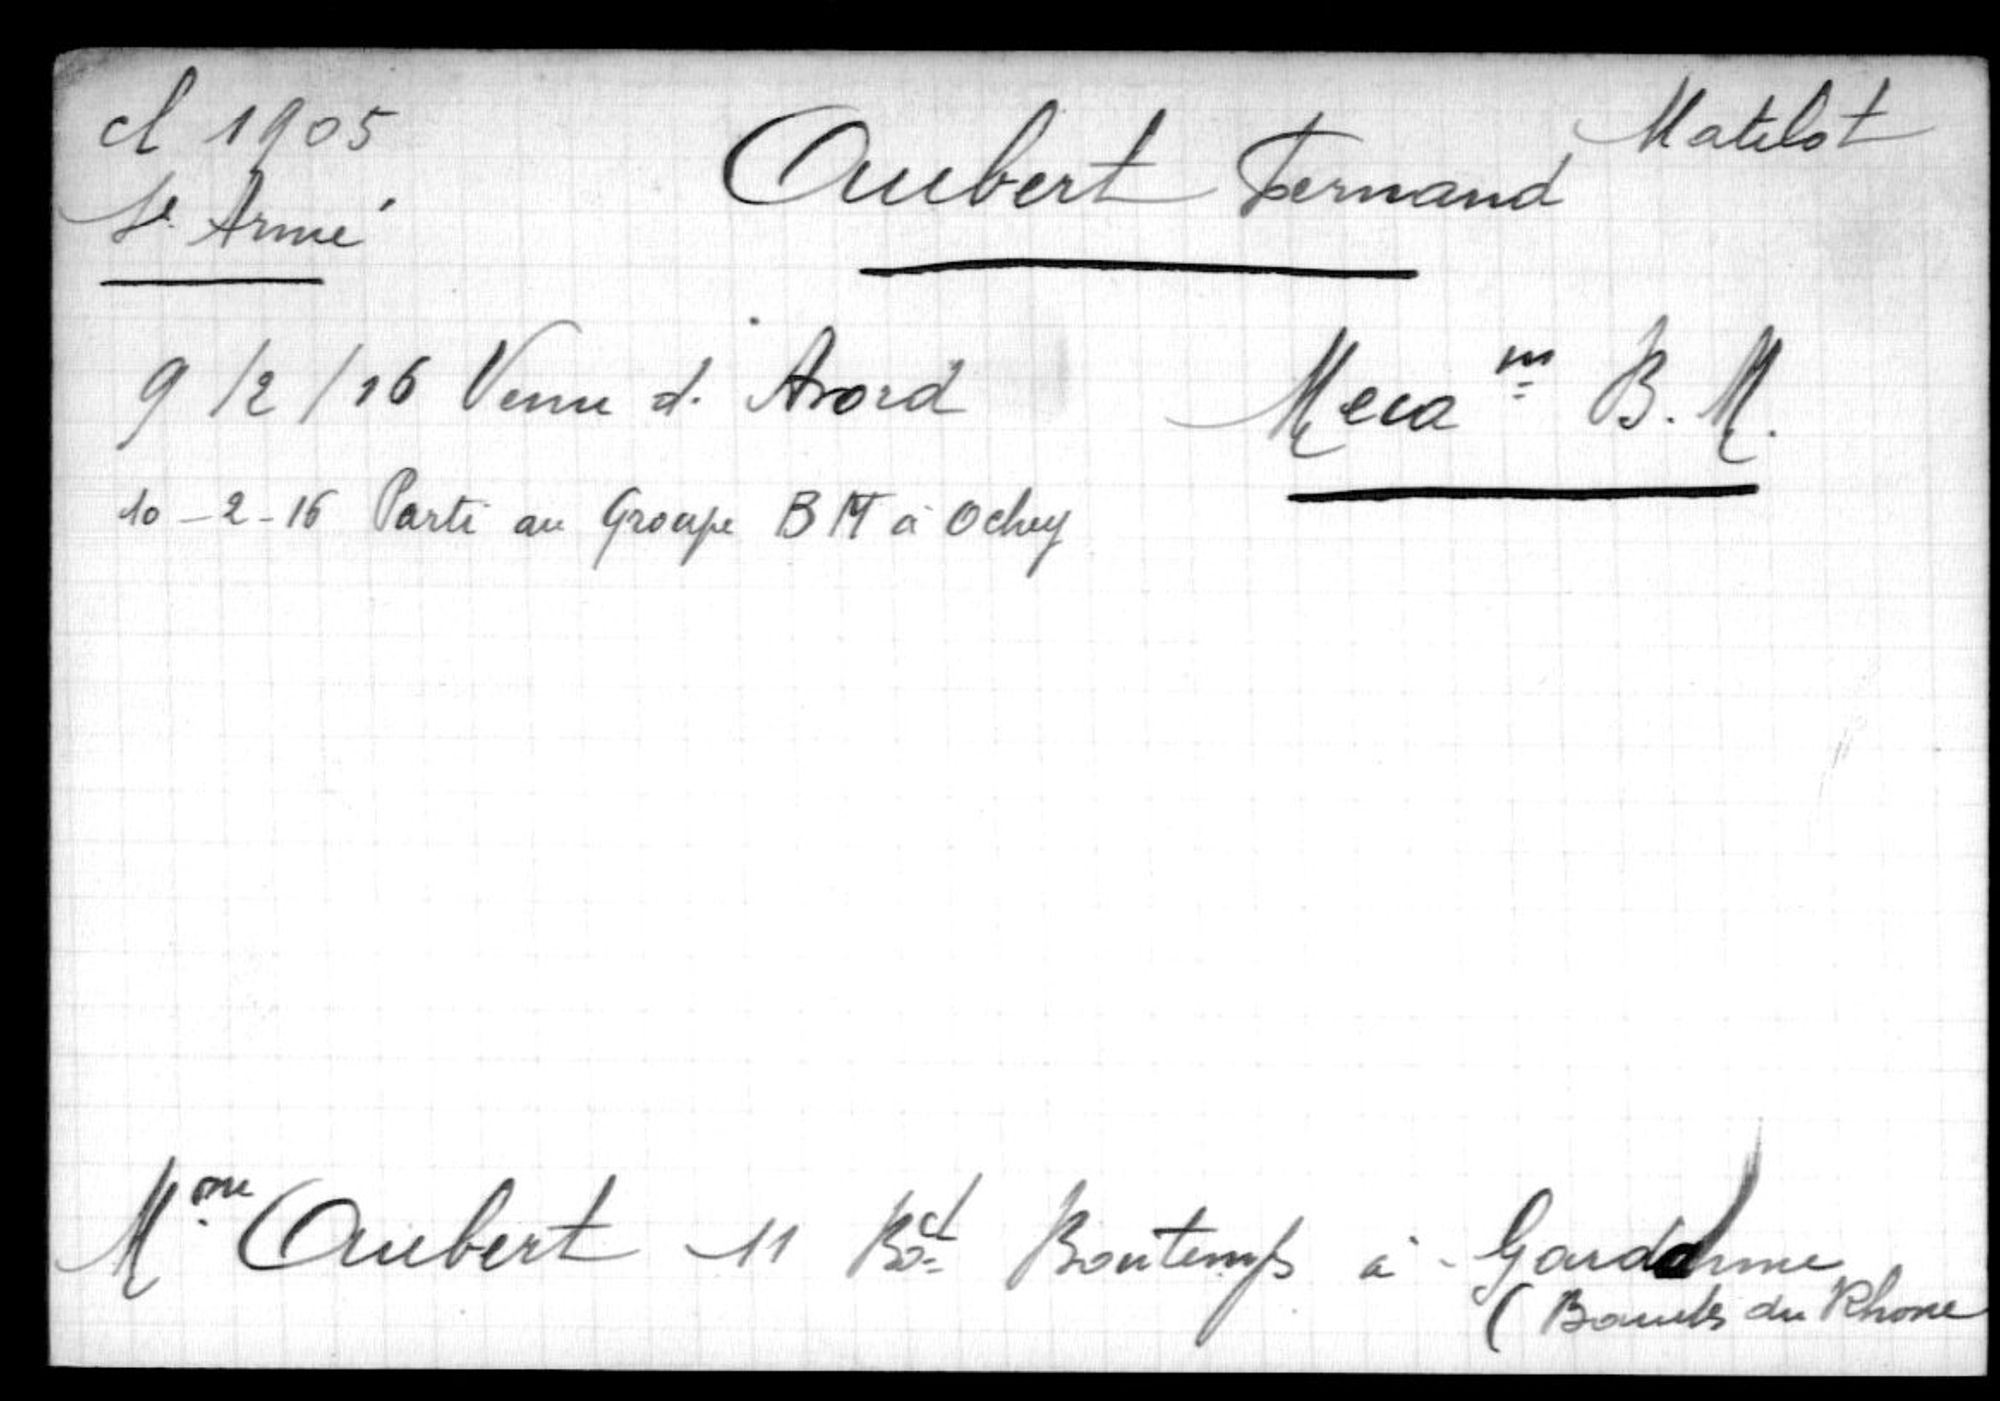 cl 1905
Sce Armé
Aubert Fernand
Matelot
9/2/16 Venu d'Avord
Mécan B.M.
10-2-16 Parti au Groupe BM à Ochey
Mme Aubert 11 Bd Bontemps à Gardanne
(Bouches du Rhone